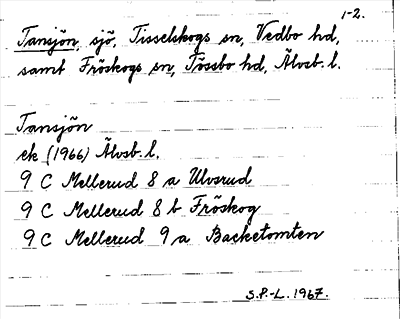 1-2.
Tansjön, sjö, Tisselskogs sn, Vedbo hd,
samt Fröskogs sn, Tössbo hd, Älvsb. l.
Tansjön
ek (1966) Älvsb. l.
9 C Mellerud 8 a Ulvsrud
9 C Mellerud 8 b Fröskog
9 C Mellerud 9 a Backetomten
S.P.-L. 1967.